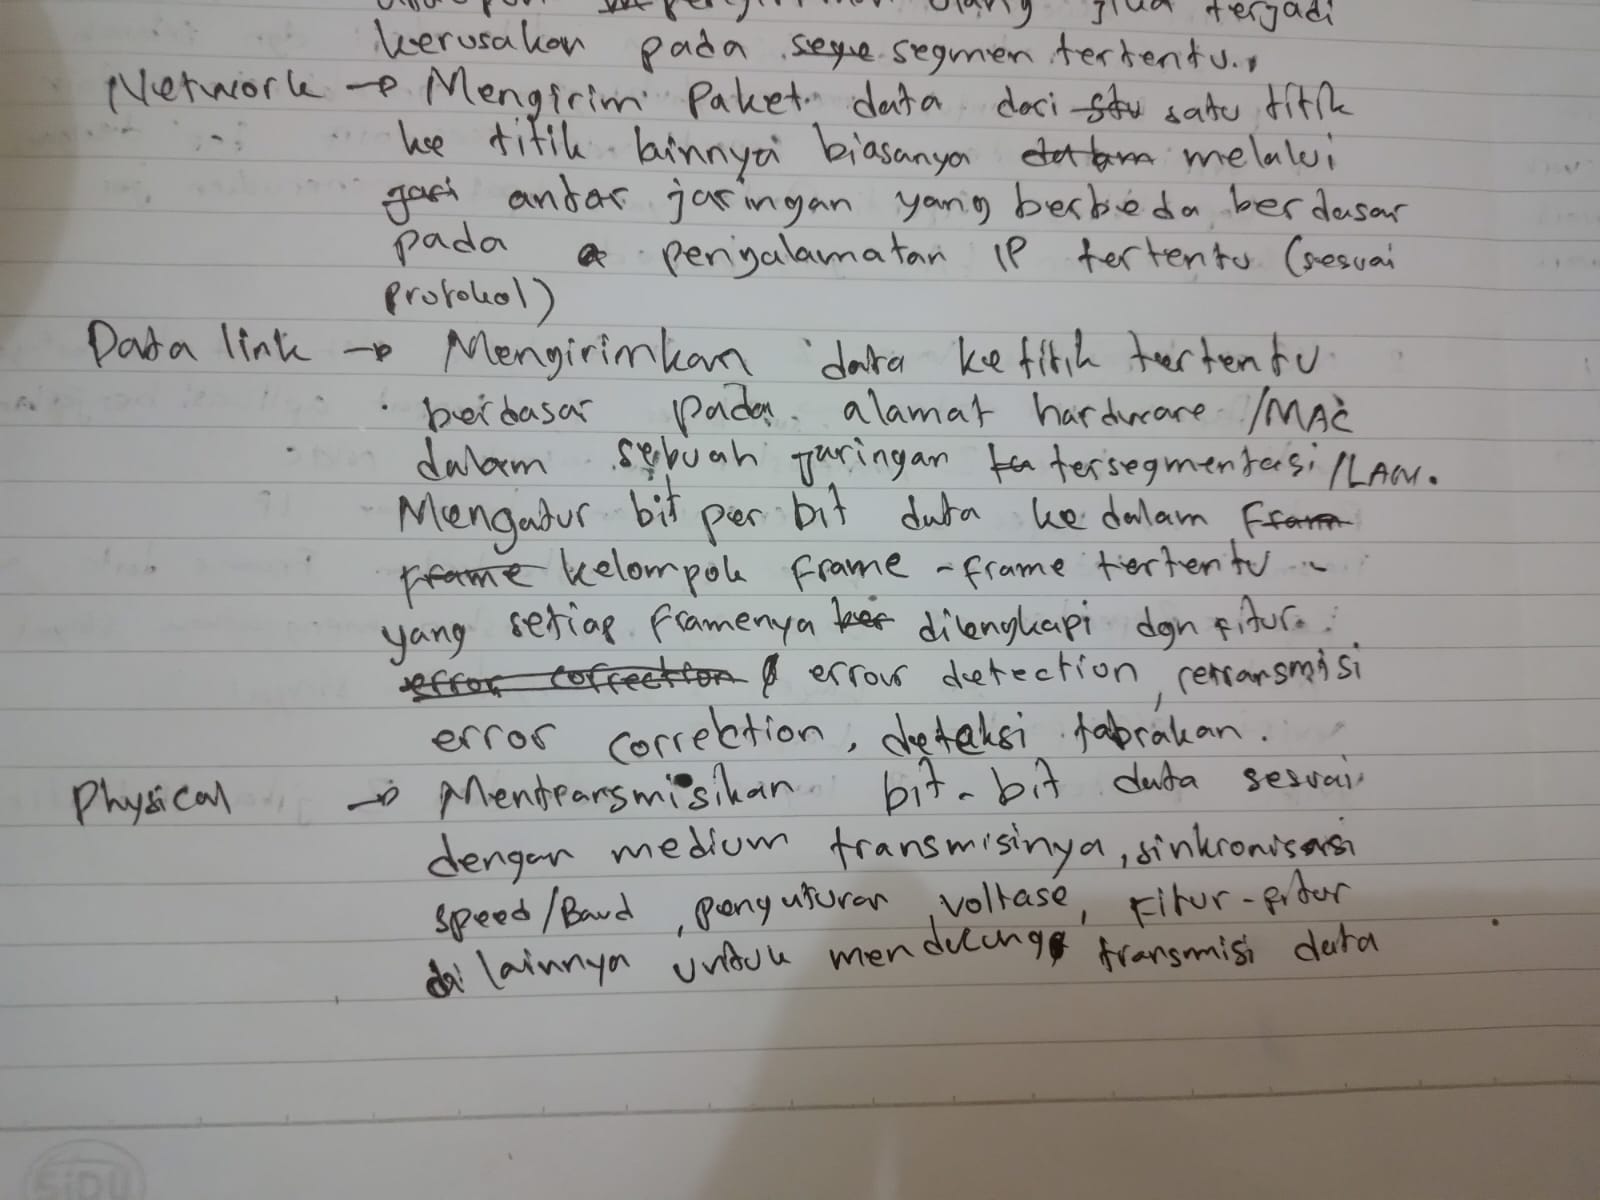 pengiriman ulang jika terjadi
kerusakan pada sege segmen tertentu.
Network → Mengirim Paket data dari stu satu titik
ke titik lainnya biasanya dalam melalui
jari antar jaringan yang berbeda berdasar
pada pengalamatan IP tertentu (sesuai
protokol)
Data link → Mengirimkan data ke titik tertentu
berdasar pada alamat hardware /MAC
dalam sebuah jaringan ta tersegmentasi /LAN.
Mengatur bit per bit data ke dalam Fram
Frame kelompok frame-frame tertentu
yang setiap framenya ber dilengkapi dgn fitur
error correction error detection, retransmisi
error correktion, deteksi tabrakan.
Physical → Mentransmisikan bit-bit data sesuai
dengan medium transmisinya, sinkronisasi
speed/Baud, pengaturan voltase, Fitur-fitur
di lainnya untuk mendukung transmisi data
SiDU